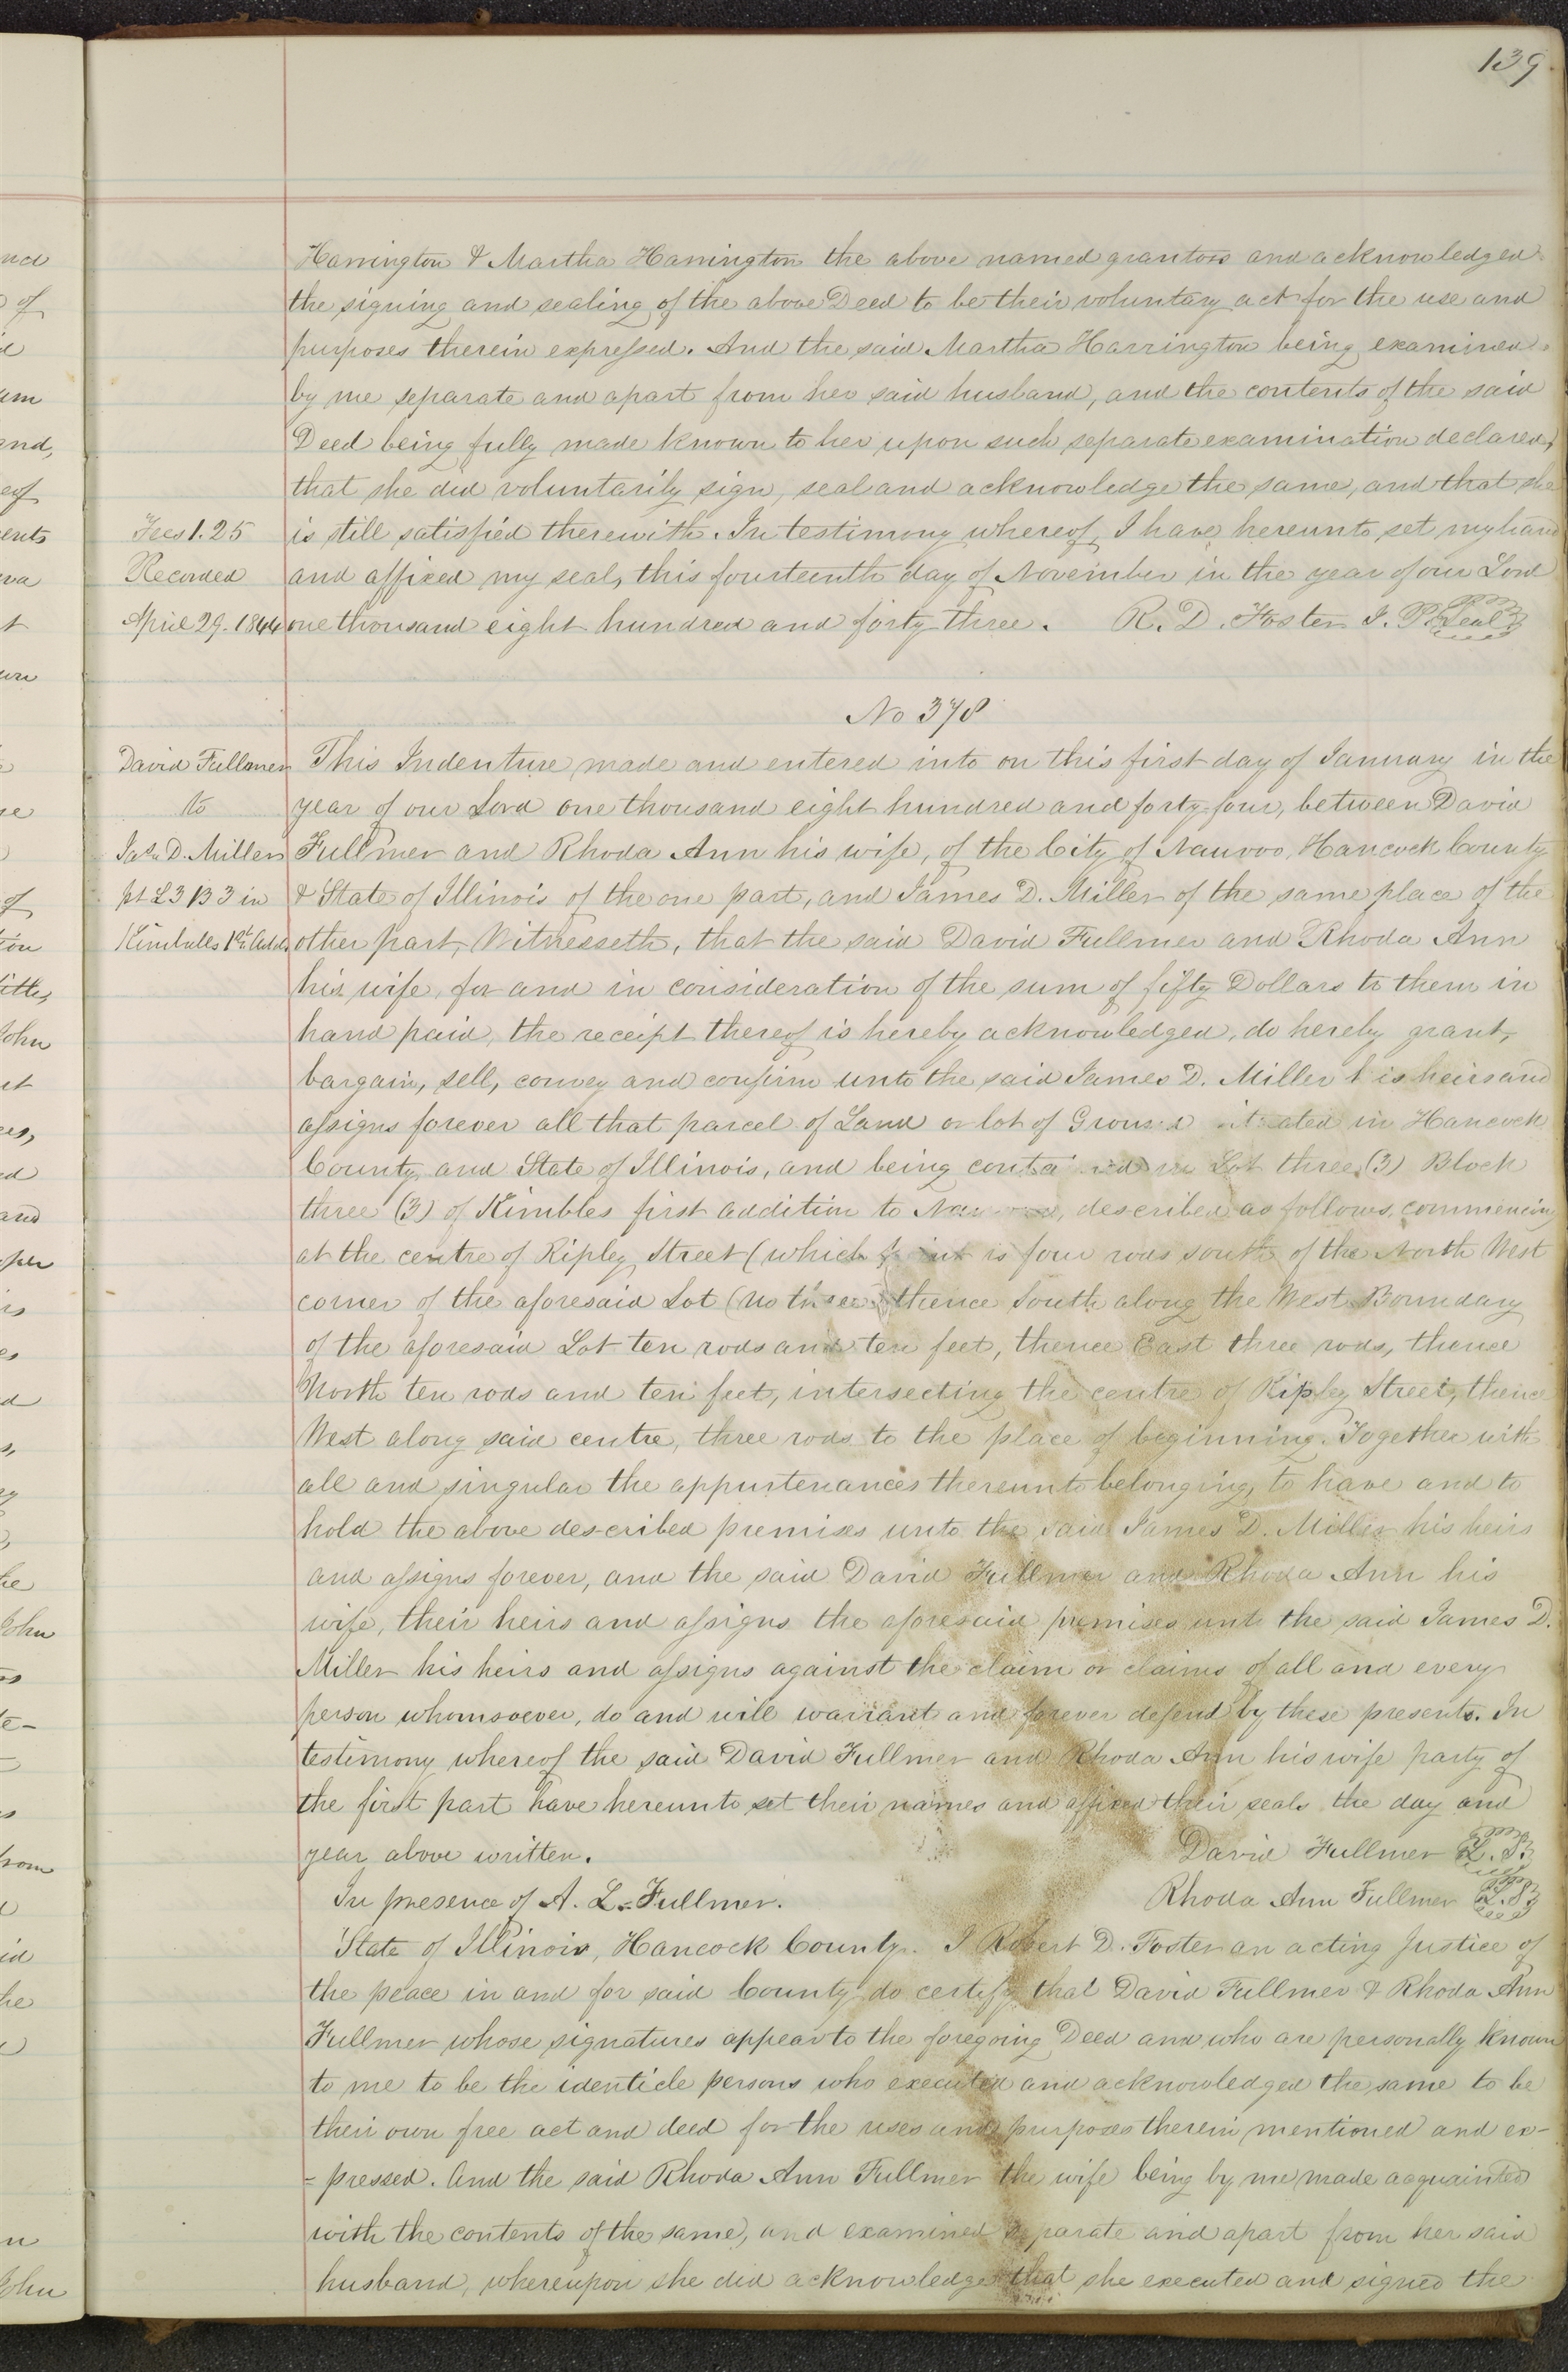 139.
Harrington & Martha Harrington the above named grantors and acknowledged
the signing and sealing of the above Deed to be their voluntary act for the use and
purposes therein expressed. And the said Martha Harrington being examined
by me separate and apart from her said husband, and the contents of the said
Deed being fully made known to her upon such separate examination declared,
that she did voluntarily sign, seal and acknowledge the same, and that she
Fees 1.25 is still satisfied therewith. In testimony whereof, I have hereunto set my hand
Recorded and affixed my seal, this fourteenth day of November in the year of our Lord
April 29. 1844 one thousand eight hundred and forty three. R. D. Foster J. P. Seal
No 378
David Fullmer This Indenture made and entered into on this first day of January in the
to year of our Lord one thousand eight hundred and forty-four, between David
Jas. D. Miller Fullmer and Rhoda Ann his wife, of the City of Nauvoo, Hancock County
pt L 3 B 3 in & State of Illinois of the one part, and James D. Miller of the same place of the
Kimbles 1st Addn other part, Witnesseth, that the said David Fullmer and Rhoda Ann
his wife, for and in consideration of the sum of fifty Dollars to them in
hand paid, the receipt thereof is hereby acknowledged, do hereby grant,
bargain, sell, convey and confirm unto the said James D. Miller his heirs and
assigns forever all that parcel of Land or lot of Ground situated in Hancock
County and State of Illinois, and being contained in Lot three (3) Block
three (3) of Kimbles first addition to Nauvoo, described as follows, commencing
at the centre of Ripley Street (which point is four rods south of the North West
corner of the aforesaid Lot (No three) thence South along the West Boundary
of the aforesaid Lot ten rods and ten feet, thence East three rods, thence
North ten rods and ten feet, intersecting the centre of Ripley Street, thence
West along said centre, three rods to the place of beginning. Together with
all and singular the appurtenances thereunto belonging, to have and to
hold the above described premises unto the said James D. Miller his heirs
and assigns forever, and the said David Fullmer and Rhoda Ann his
wife, their heirs and assigns the aforesaid premises unto the said James D.
Miller his heirs and assigns against the claim or claims of all and every
person whomsoever, do and will warrant and forever defend by these presents. In
testimony whereof the said David Fullmer and Rhoda Ann his wife party of
the first part have hereunto set their names and affixed their seals the day and
year above written. David Fullmer L.S.
In presence of A. L. Fullmer. Rhoda Ann Fullmer L.S.
State of Illinois, Hancock County. I Robert D. Foster an acting Justice of
the peace in and for said County do certify that David Fullmer & Rhoda Ann
Fullmer whose signatures appear to the foregoing Deed and who are personally known
to me to be the identicle persons who executed and acknowledged the same to be
their own free act and deed for the uses and purposes therein mentioned and ex-
=pressed. And the said Rhoda Ann Fullmer the wife being by me made acquainted
with the contents of the same, and examined separate and apart from her said
husband, whereupon she did acknowledge that she executed and signed the